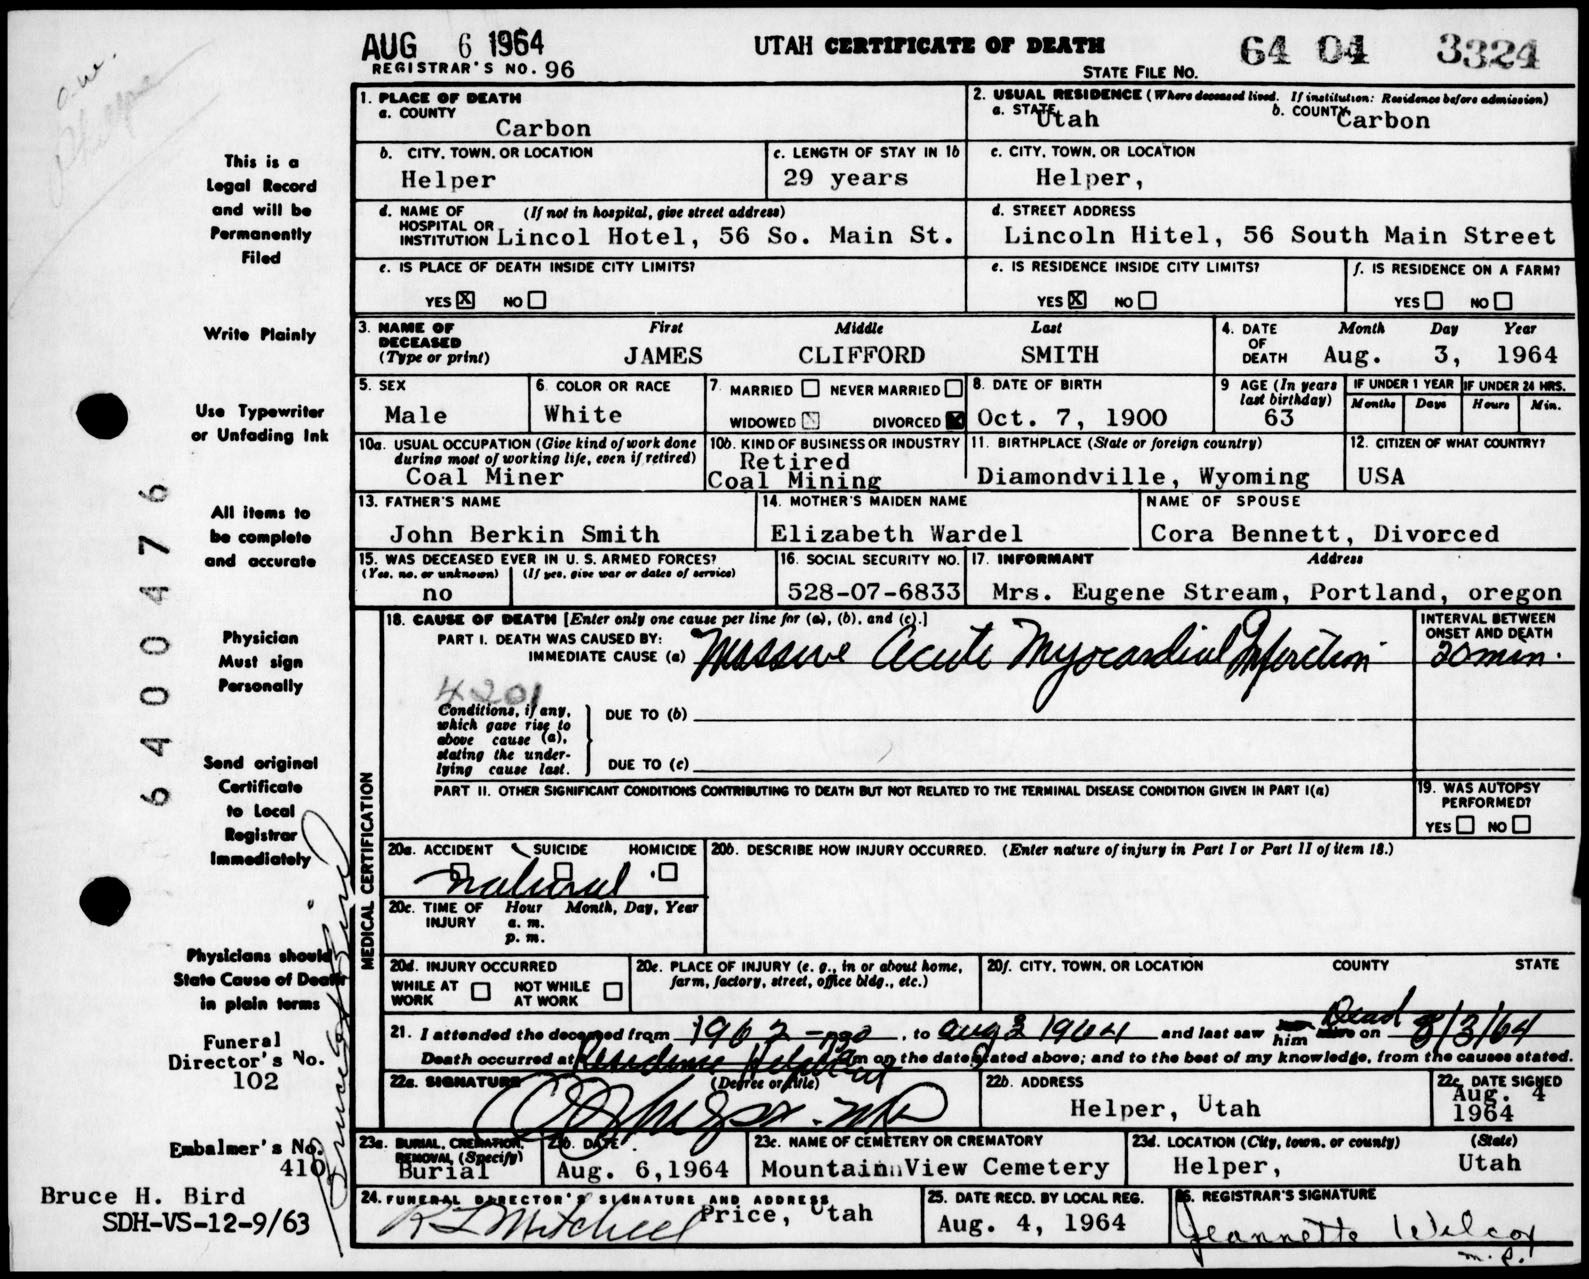 AUG 6 1964
UTAH CERTIFICATE OF DEATH
64 04 3324
REGISTRAR'S NO. 96
STATE FILE NO.
1. PLACE OF DEATH
a. COUNTY
Carbon
2. USUAL RESIDENCE (Where deceased lived. If institution: Residence before admission)
a. STATE Utah
b. COUNTY Carbon
b. CITY, TOWN, OR LOCATION
Helper
c. LENGTH OF STAY IN 1b
29 years
c. CITY, TOWN, OR LOCATION
Helper,
d. NAME OF HOSPITAL OR INSTITUTION (If not in hospital, give street address)
Lincol Hotel, 56 So. Main St.
d. STREET ADDRESS
Lincoln Hitel, 56 South Main Street
e. IS PLACE OF DEATH INSIDE CITY LIMITS?
YES X NO
e. IS RESIDENCE INSIDE CITY LIMITS?
YES X NO
f. IS RESIDENCE ON A FARM?
YES NO
3. NAME OF DECEASED (Type or print)
First Middle Last
JAMES CLIFFORD SMITH
4. DATE OF DEATH
Month Day Year
Aug. 3, 1964
5. SEX
Male
6. COLOR OR RACE
White
7. MARRIED NEVER MARRIED
WIDOWED DIVORCED X
8. DATE OF BIRTH
Oct. 7, 1900
9 AGE (In years last birthday)
63
IF UNDER 1 YEAR
Months Days
IF UNDER 24 HRS.
Hours Min.
10a. USUAL OCCUPATION (Give kind of work done during most of working life, even if retired)
Coal Miner
10b. KIND OF BUSINESS OR INDUSTRY
Retired
Coal Mining
11. BIRTHPLACE (State or foreign country)
Diamondville, Wyoming
12. CITIZEN OF WHAT COUNTRY?
USA
13. FATHER'S NAME
John Berkin Smith
14. MOTHER'S MAIDEN NAME
Elizabeth Wardel
NAME OF SPOUSE
Cora Bennett, Divorced
15. WAS DECEASED EVER IN U. S. ARMED FORCES?
(Yes, no, or unknown) (If yes, give war or dates of service)
no
16. SOCIAL SECURITY NO.
528-07-6833
17. INFORMANT Address
Mrs. Eugene Stream, Portland, oregon
MEDICAL CERTIFICATION
18. CAUSE OF DEATH [Enter only one cause per line for (a), (b), and (c).]
PART I. DEATH WAS CAUSED BY:
IMMEDIATE CAUSE (a) Massive Acute Myocardial Infarction
INTERVAL BETWEEN ONSET AND DEATH
20 min.
4201
Conditions, if any, which gave rise to above cause (a), stating the underlying cause last.
DUE TO (b)
DUE TO (c)
PART II. OTHER SIGNIFICANT CONDITIONS CONTRIBUTING TO DEATH BUT NOT RELATED TO THE TERMINAL DISEASE CONDITION GIVEN IN PART I(a)
19. WAS AUTOPSY PERFORMED?
YES NO
20a. ACCIDENT SUICIDE HOMICIDE
natural
20b. DESCRIBE HOW INJURY OCCURRED. (Enter nature of injury in Part I or Part II of item 18.)
20c. TIME OF INJURY Hour Month, Day, Year
a. m.
p. m.
20d. INJURY OCCURRED
WHILE AT WORK NOT WHILE AT WORK
20e. PLACE OF INJURY (e. g., in or about home, farm, factory, street, office bldg., etc.)
20f. CITY, TOWN, OR LOCATION COUNTY STATE
21. I attended the deceased from 1962 to Aug 3 1964 and last saw him Dead on 8/3/64
Death occurred at Residence Helper m on the date stated above; and to the best of my knowledge, from the causes stated.
22a. SIGNATURE (Degree or title)
22b. ADDRESS
Helper, Utah
22c. DATE SIGNED
Aug. 4
1964
23a. BURIAL, CREMATION, REMOVAL (Specify)
Burial
23b. DATE
Aug. 6,1964
23c. NAME OF CEMETERY OR CREMATORY
Mountain View Cemetery
23d. LOCATION (City, town, or county) (State)
Helper, Utah
24. FUNERAL DIRECTOR'S SIGNATURE AND ADDRESS
R L Mitchell Price, Utah
25. DATE RECD. BY LOCAL REG.
Aug. 4, 1964
26. REGISTRAR'S SIGNATURE
Jeannette Wilcox
This is a
Legal Record
and will be
Permanently
Filed
Write Plainly
Use Typewriter
or Unfading Ink
All items to
be complete
and accurate
Physician
Must sign
Personally
Send original
Certificate
to Local
Registrar
Immediately
Physicians should
State Cause of Death
in plain terms
Funeral
Director's No.
102
Embalmer's No.
410
Bruce H. Bird
SDH-VS-12-9/63
6400476
Bruce H Bird